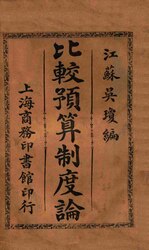 江蘇吳瓊編
比較預算制度論
上海商務印書館印行